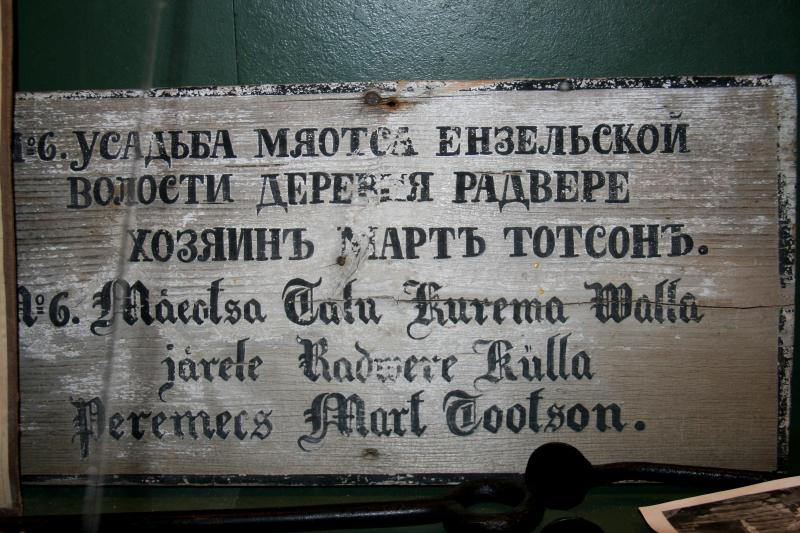 №6. УСАДЬБА МЯОТСА ЕНЗЕЛЬСКОЙ
ВОЛОСТИ ДЕРЕВНЯ РАДВЕРЕ
ХОЗЯИНЪ МАРТЪ ТОТСОНЪ.
№6. Mäeotsa Talu Kurema Walla
järele Radwere Külla
Peremees Mart Tootson.